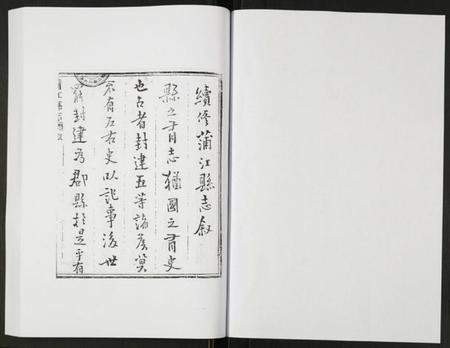 續修蒲江縣志叙
縣之有志猶國之有史
也古者封建五等諸侯莫
不有左右史以記事後世
罷封建為郡縣於是乎有